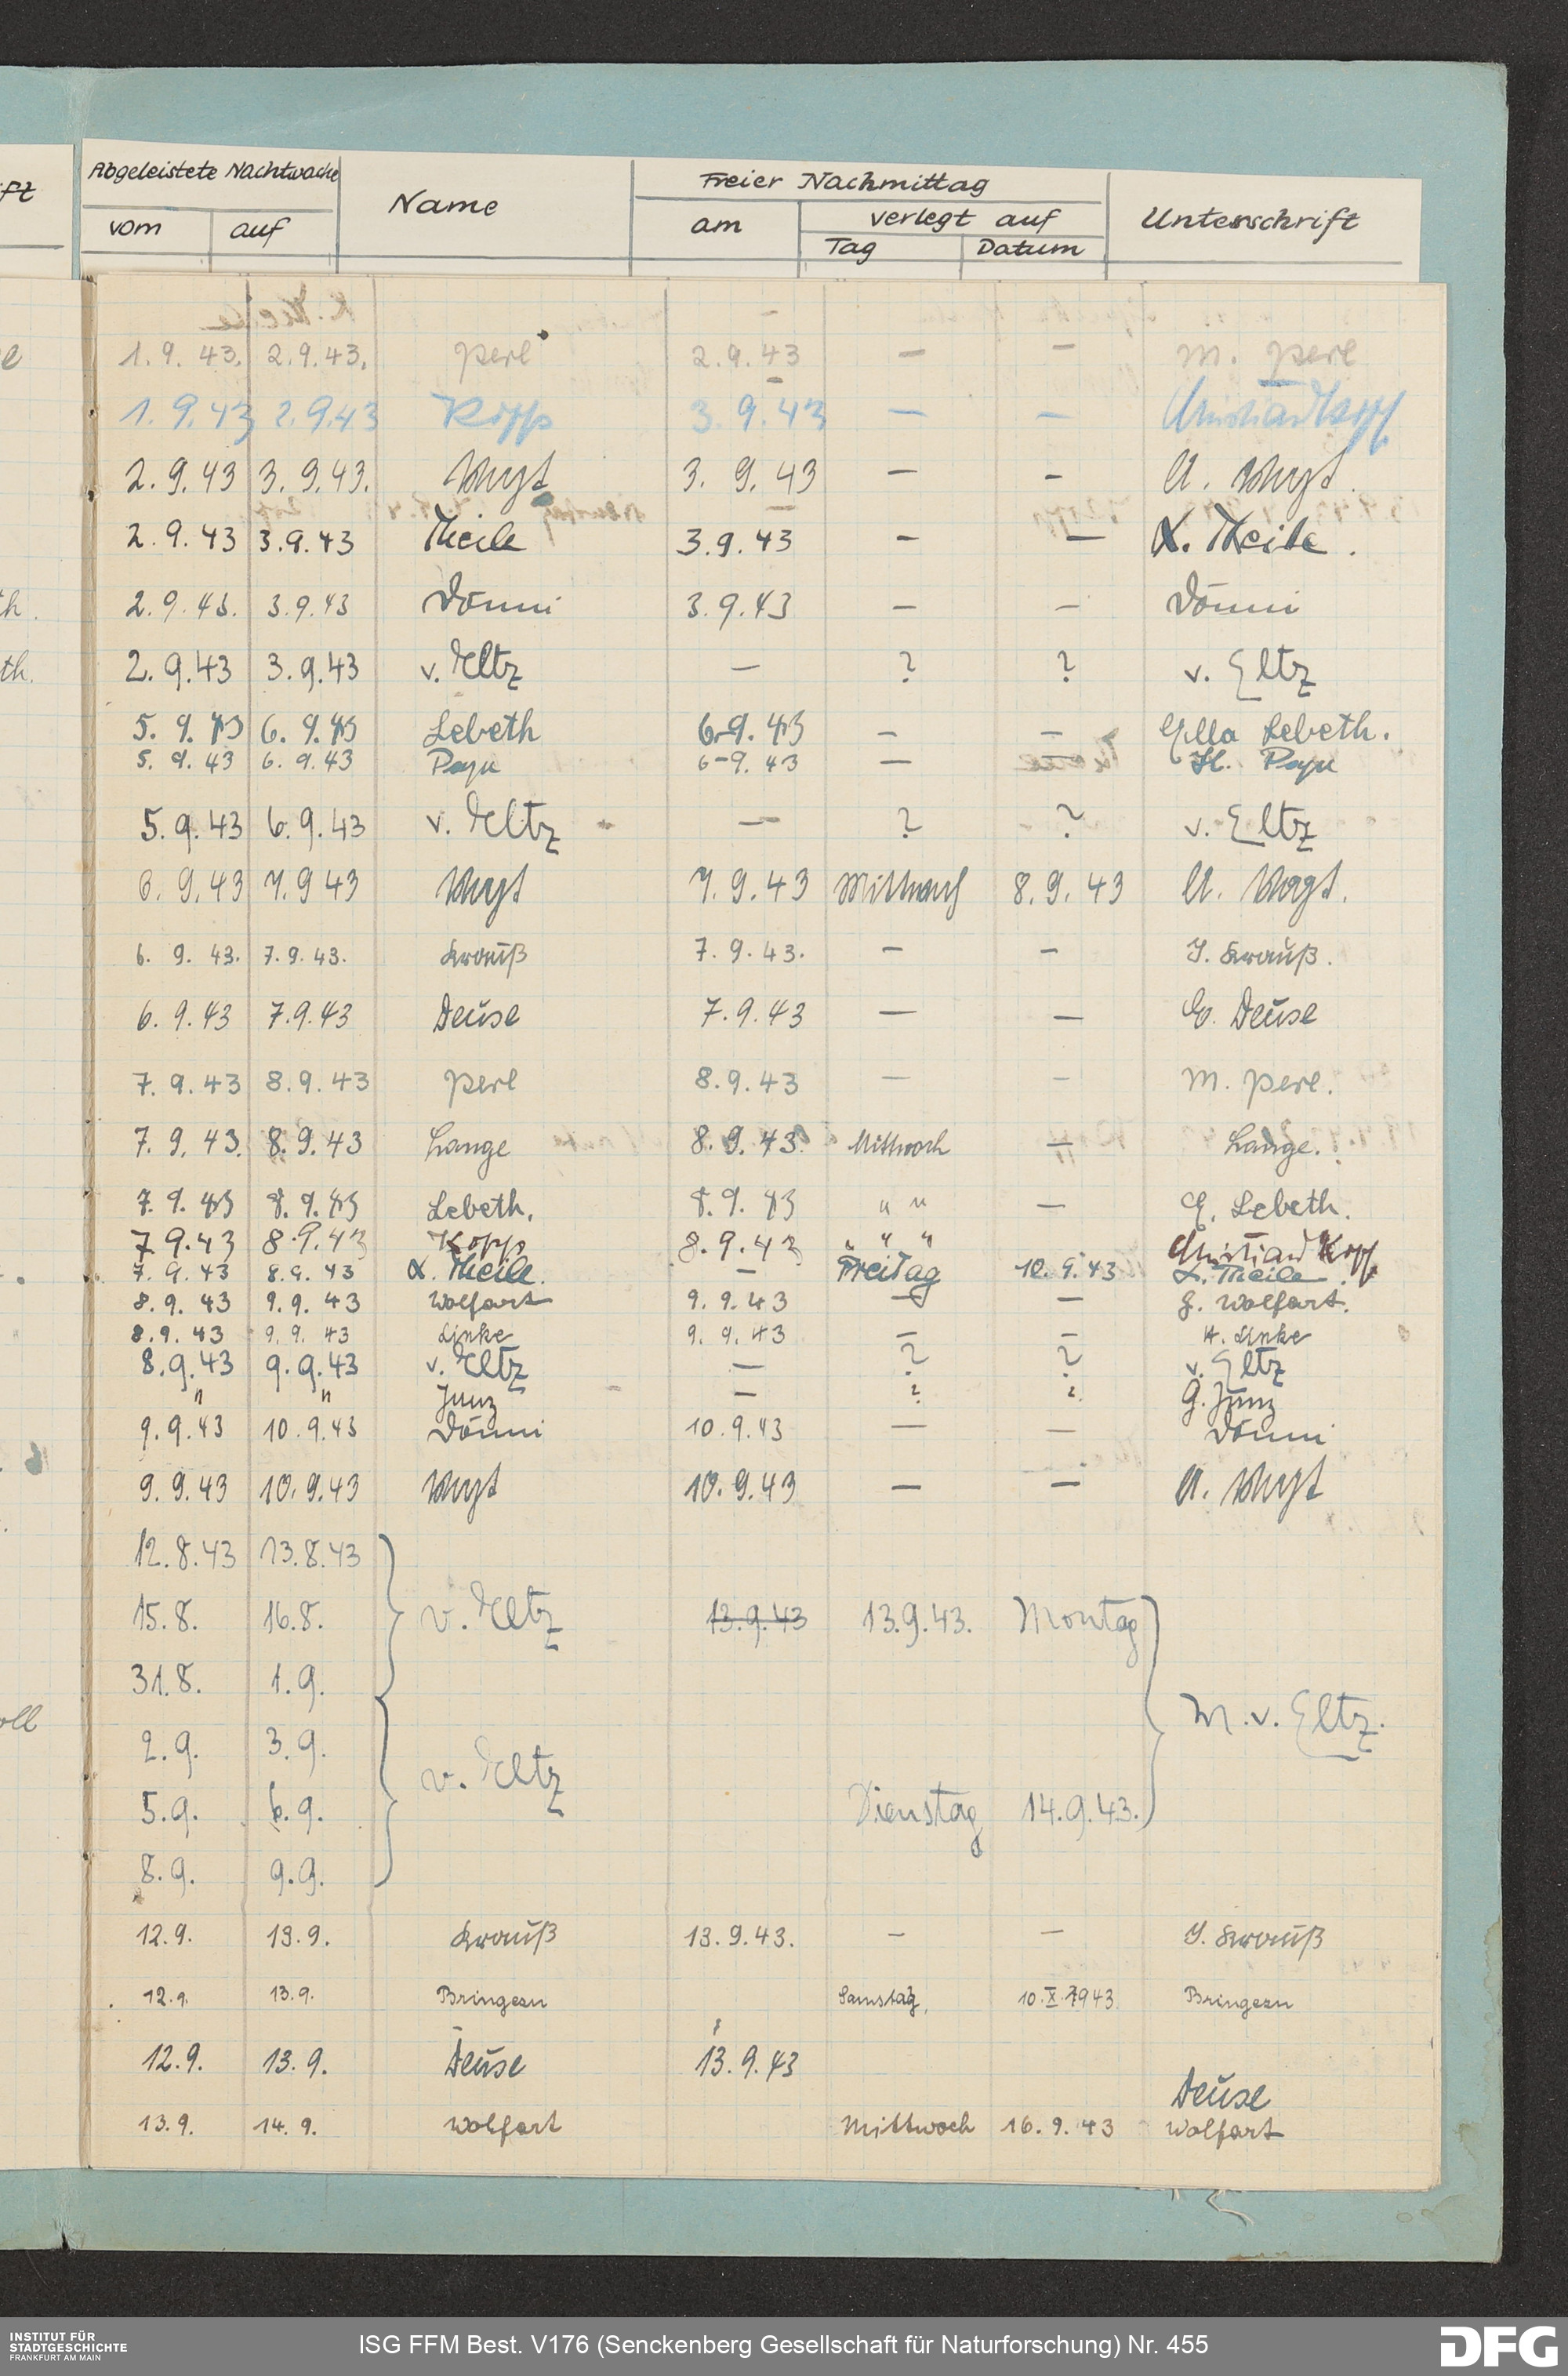 Abgeleistete Nachtwache Name Freier Nachmittag Unterschrift
vom auf am verlegt auf
Tag Datum
1.9.43. 2.9.43. Perl 2.9.43 — — M. Perl
1.9.43 2.9.43 Kopp 3.9.43 — —
2.9.43 3.9.43. Vogt 3.9.43 — — A. Vogt.
2.9.43 3.9.43 Theile 3.9.43 — — L. Theile.
2.9.43. 3.9.43 Dönni 3.9.43 — — Dönni
2.9.43 3.9.43 v. Eltz — ? ? v. Eltz
5.9.43 6.9.43 Lebeth 6.9.43 — — Ella Lebeth.
5.9.43 6.9.43 6-9.43 — —
5.9.43 6.9.43 v. Eltz — ? ? v. Eltz
6.9.43 7.9 43 Vogt 7.9.43 Mittwoch 8.9.43 A. Vogt.
6.9.43. 7.9.43. Krauß 7.9.43. — — J. Krauß.
6.9.43 7.9.43 Deuse 7.9.43 — — E. Deuse
7.9.43 8.9.43 Perl 8.9.43 — — M. Perl.
7.9.43. 8.9.43 Lange 8.9.43. Mittwoch — Lange.
7.9.43 8.9.43 Lebeth. 8.9.43 " " — E. Lebeth.
7 9.43 8.9.43 Kopp 8.9.43 " " "
7.9.43 8.9.43 L. Theile. — Freitag 10.9.43 L. Theile.
8.9.43 9.9.43 Wolfart 9.9.43 — — G. Wolfart.
8.9.43 9.9.43 Linke 9.9.43 — — H. Linke
8.9.43 9.9.43 v. Eltz — ? ? v. Eltz
" " Junz — ? ? G. Junz
9.9.43 10.9.43 Dönni 10.9.43 — — Dönni
9.9.43 10.9.43 Vogt 10.9.43 — — A. Vogt
12.8.43 13.8.43
15.8. 16.8. v. Eltz 13.9.43 13.9.43. Montag
31.8. 1.9.
M. v. Eltz.
2.9. 3.9.
v. Eltz
5.9. 6.9. Dienstag 14.9.43.
8.9. 9.9.
12.9. 13.9. Krauß 13.9.43. — — J. Krauß
12.9. 13.9. Bringezu Samstag, 10.X.1943 Bringezu
12.9. 13.9. Deuse 13.9.43
Deuse
13.9. 14.9. Wolfart Mittwoch 16.9.43 Wolfart
INSTITUT FÜR
STADTGESCHICHTE
FRANKFURT AM MAIN
ISG FFM Best. V176 (Senckenberg Gesellschaft für Naturforschung) Nr. 455
DFG